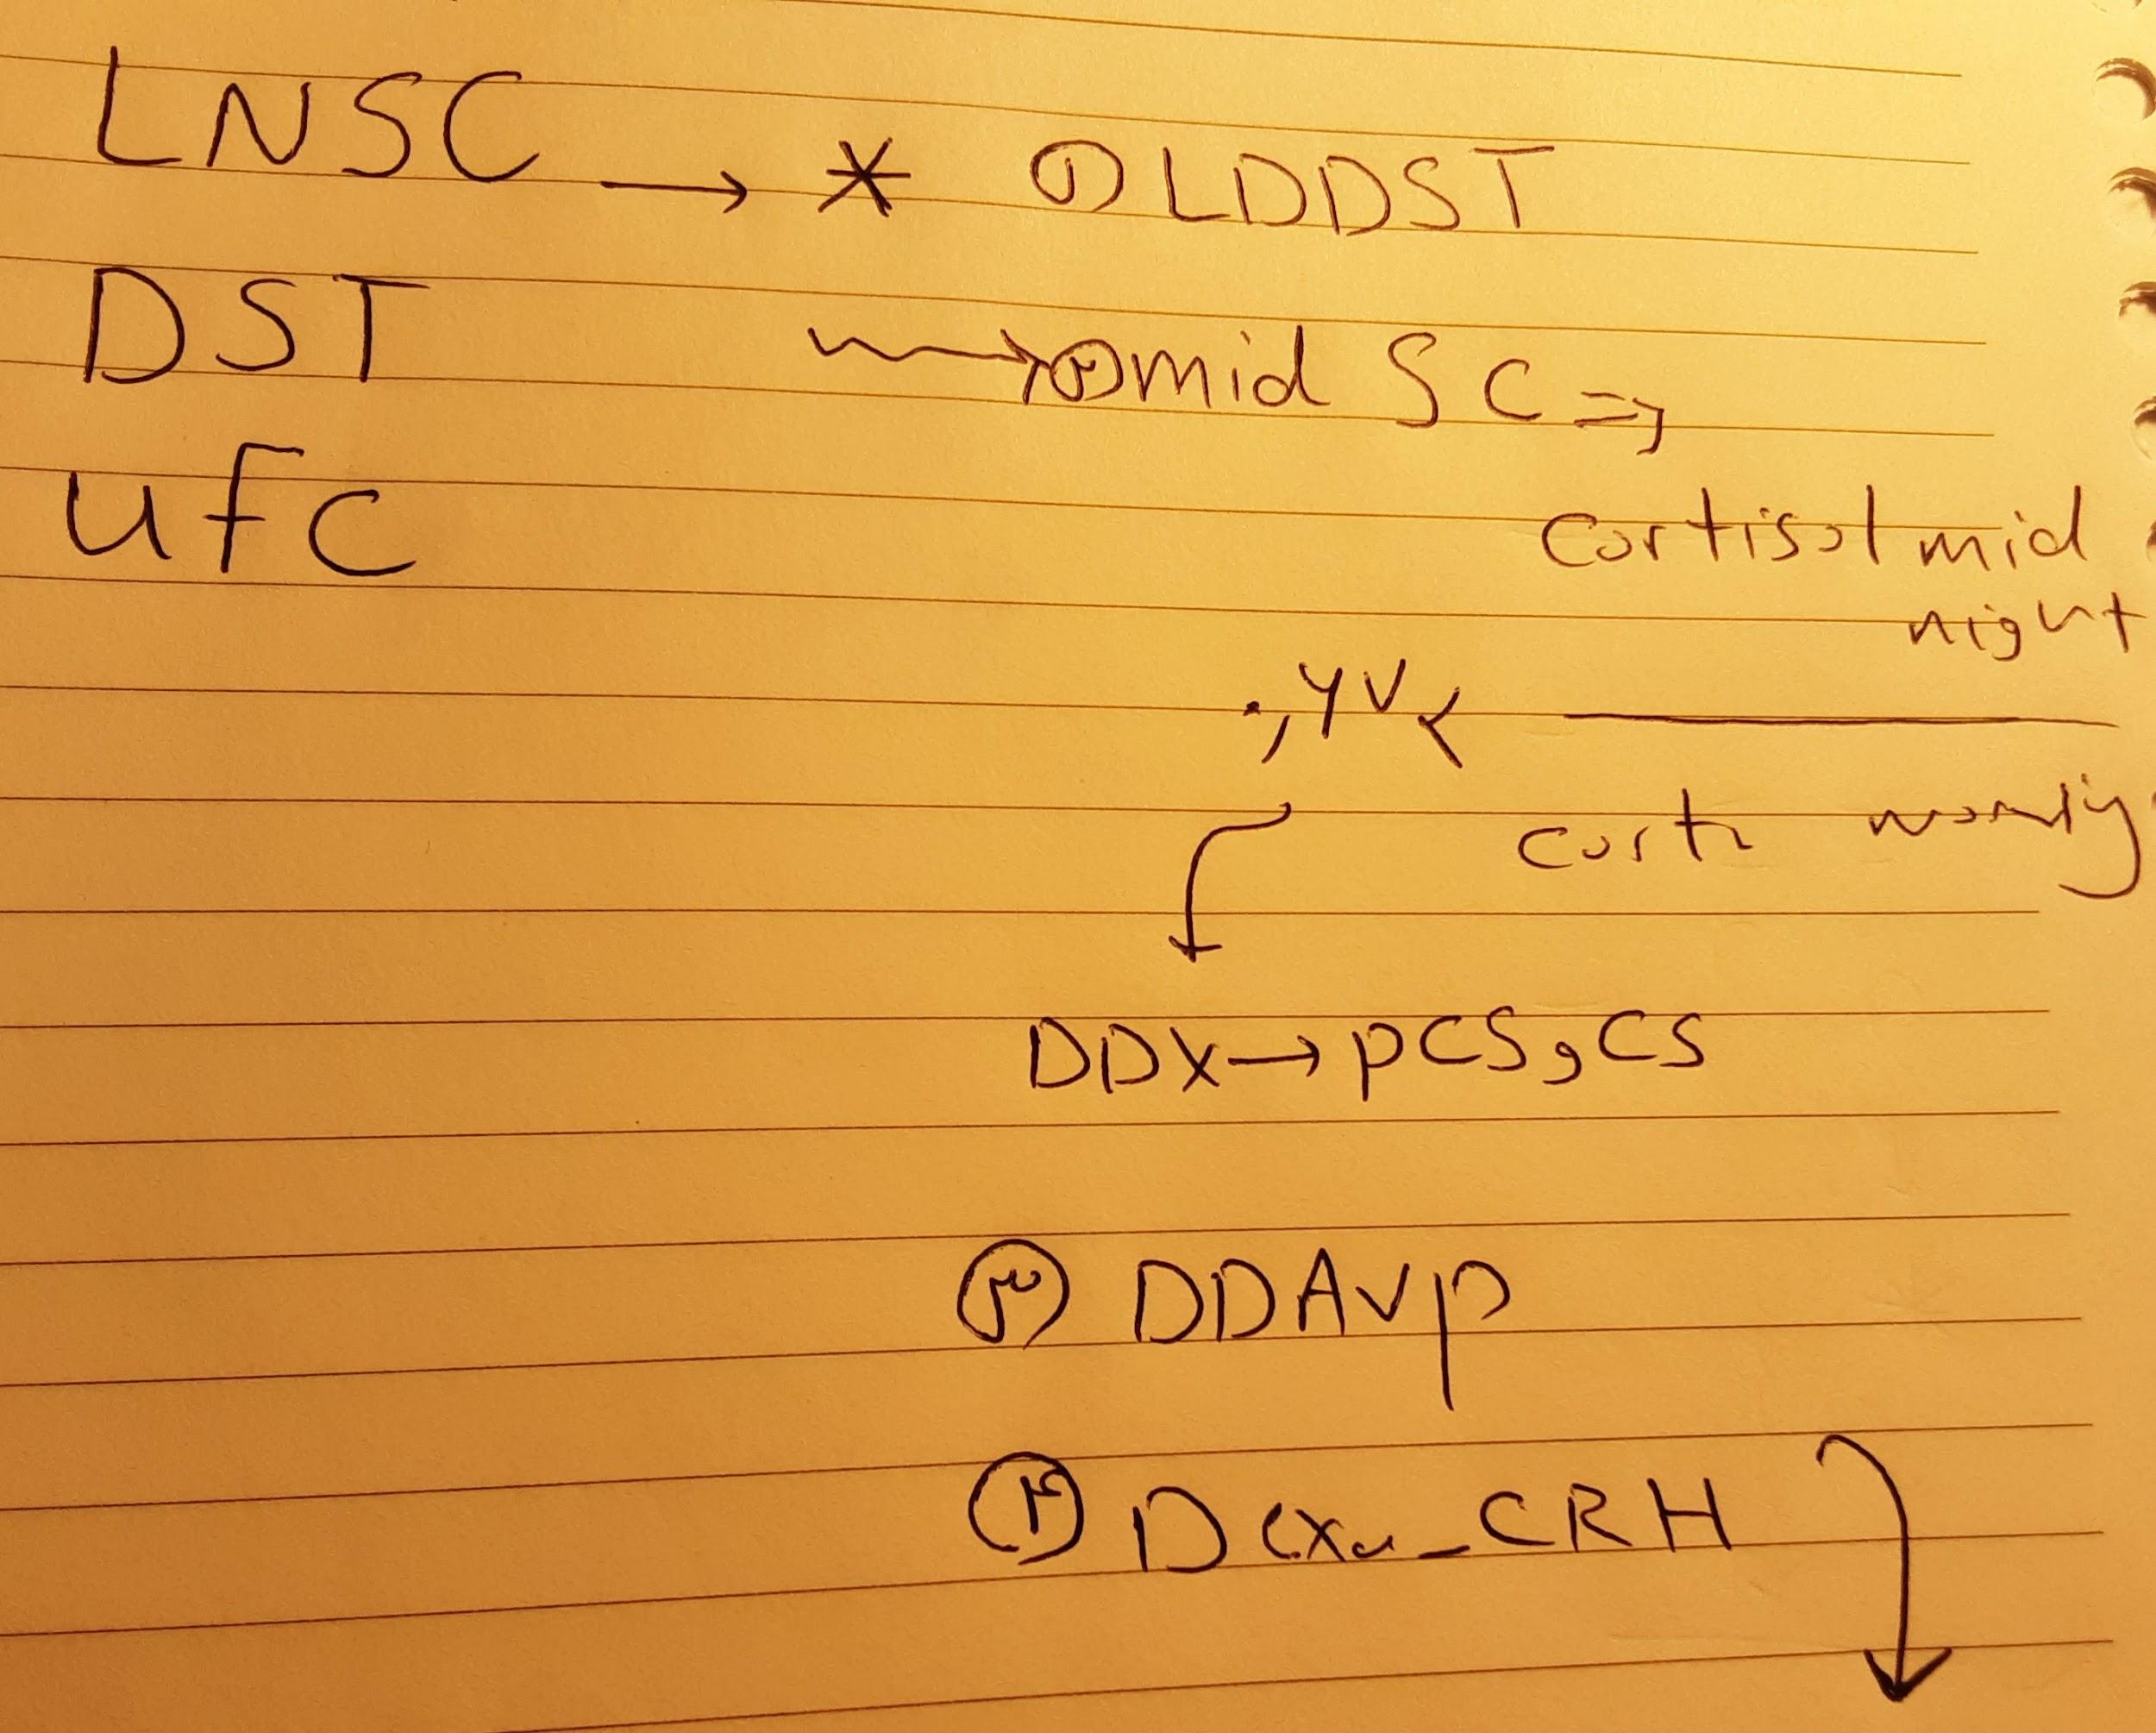 LNSC → * ① LDDST
DST → ② mid SC ⇒
UFC
cortisol mid
night
۰,۶۷ <
corti
DDX → PCS, CS
③ DDAVP
④ Dexa_CRH